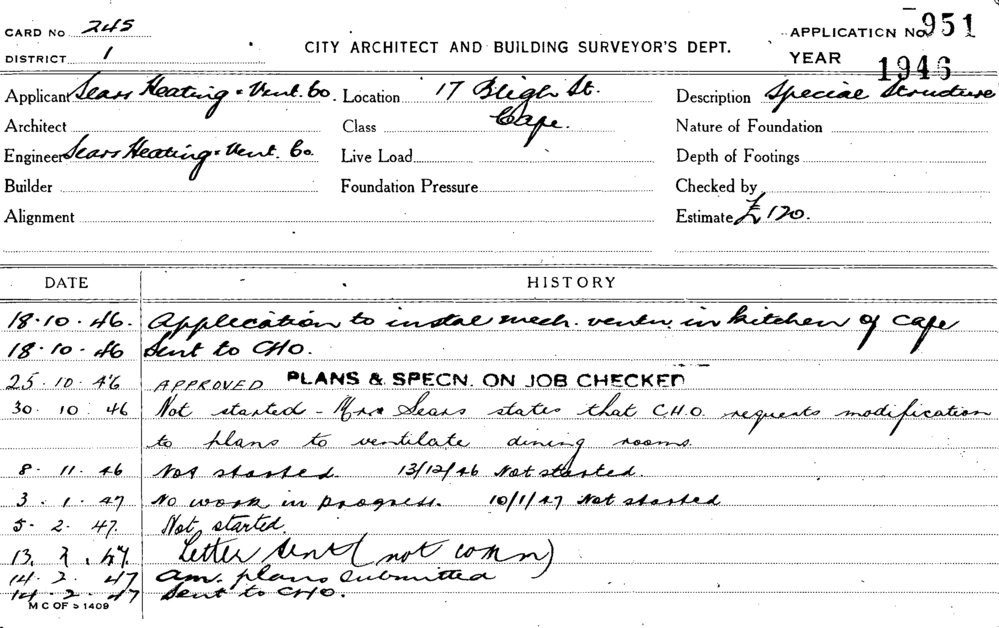 CARD No 245
DISTRICT 1
CITY ARCHITECT AND BUILDING SURVEYOR'S DEPT.
APPLICATION No 951
YEAR 1946
Applicant Sears Heating & Vent. Co. Location 17 Bligh St. Description Special Structure
Architect Class Cafe. Nature of Foundation
Engineer Sears Heating & Vent. Co Live Load Depth of Footings
Builder Foundation Pressure Checked by
Alignment Estimate £120.
DATE HISTORY
18.10.46. Application to instal mech. ventn. in kitchen of cafe
18.10.46 Sent to CHO.
25.10.46 APPROVED PLANS & SPECN. ON JOB CHECKED
30.10.46 Not started - Sears states that C.H.O. requests modification
to plans to ventilate dining rooms.
8.11.46 Not started. 13/12/46 Not started.
3.1.47 No work in progress. 10/1/47 Not started
5.2.47. Not started.
13.2.47. Letter sent (not comn)
14.2.47 am. plans submitted
14.2.47 Sent to CHO.
M C OF S 1409